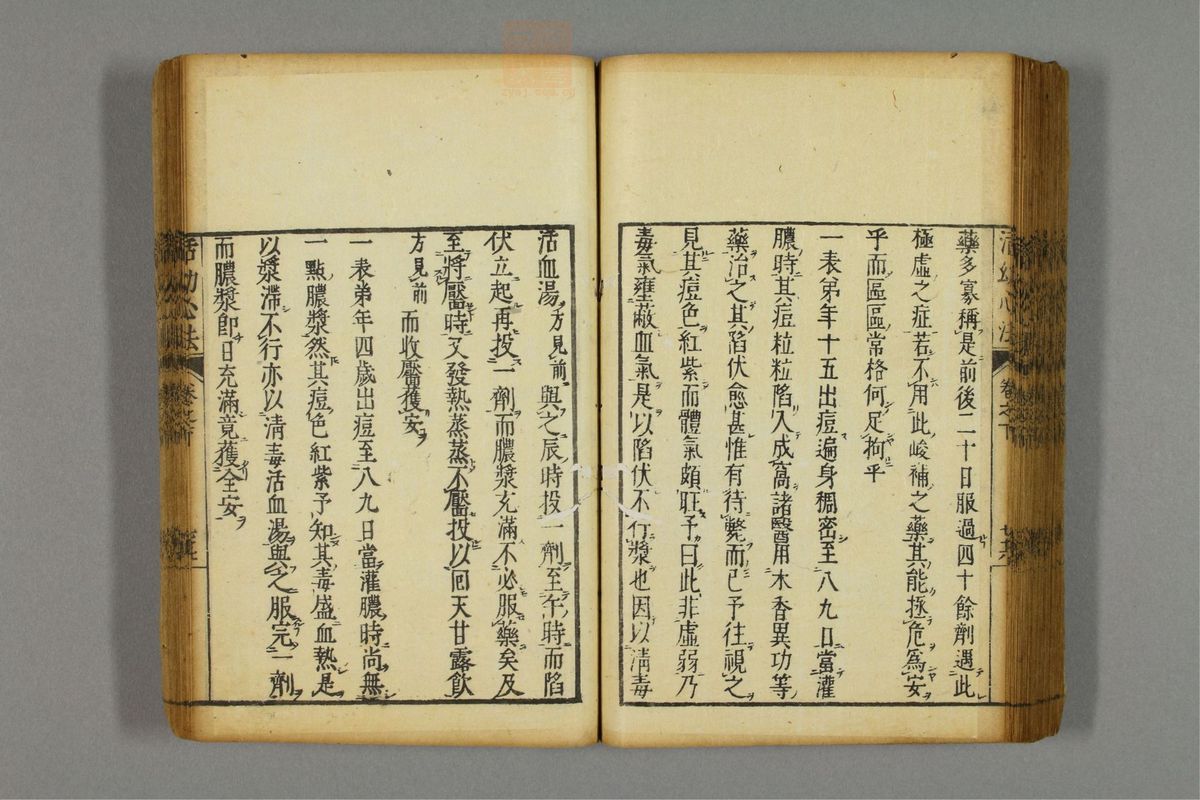 藥多寡稱是前後二十日服過四十餘劑遇此
極虛之症若不用此峻補之藥其能拯危爲安
乎而區區常格何足拘乎
一表弟年十五出痘遍身稠密至八九日當灌
膿時其痘粒粒陷入成窩諸醫用木香異功等
藥治之其陷伏愈甚惟有待斃而已予往視之
見其痘色紅紫而體氣頗旺予曰此非虛弱乃
毒氣壅蔽血氣是以陷伏不行漿也因以淸毒
活血湯方見前與之辰時投一劑至午時而陷
伏立起再投一劑而膿漿充滿不必服藥矣及
至將靨時又發熱蒸蒸不靨投以囘天甘露飮
方見前而收靨獲安
一表弟年四歲出痘至八九日當灌膿時尚無
一點膿漿然其痘色紅紫予知其毒盛血熱是
以漿滯不行亦以淸毒活血湯與之服完一劑
而膿漿卽日充滿竟獲全安
活幼心法